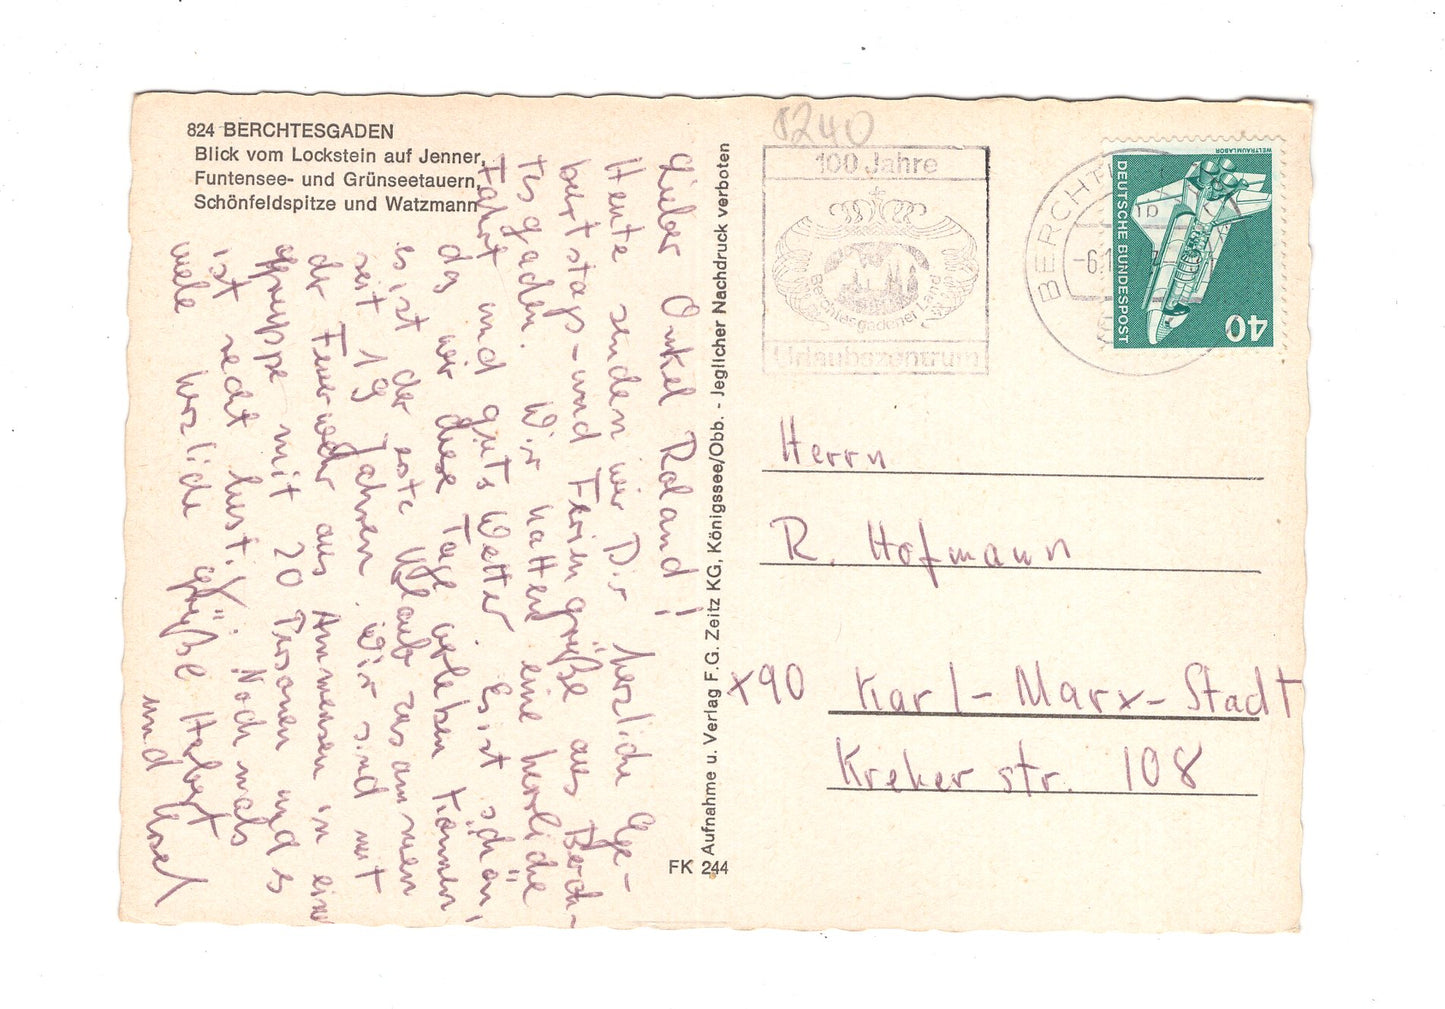 824 BERCHTESGADEN
Blick vom Lockstein auf Jenner,
Funtensee- und Grünseetauern,
Schönfeldspitze und Watzmann
Lieber Onkel Roland!
Heute senden wir Dir herzliche Ge-
burtstags- und Feriengrüße aus Berch-
tesgaden. Wir hatten eine herrliche
Fahrt und guts Wetter. Es ist schön,
daß wir diese Tage erleben können,
es ist der erste Urlaub zusammen
seit 19 Jahren. Wir sind mit
der Feuerwehr aus Ammensen in einer
Gruppe mit 20 Personen und es
ist recht lustig. Nochmals
viele herzliche Grüße Herbert
und
Aufnahme u. Verlag F.G. Zeitz KG, Königssee/Obb. - Jeglicher Nachdruck verboten
FK 244
8240
100 Jahre
Berchtesgadener Land
Urlaubszentrum
BERCHT
-6.1
WELTRAUMLABOR
DEUTSCHE BUNDESPOST
40
Herrn
R. Hofmann
x90 Karl-Marx-Stadt
Kreherstr. 108